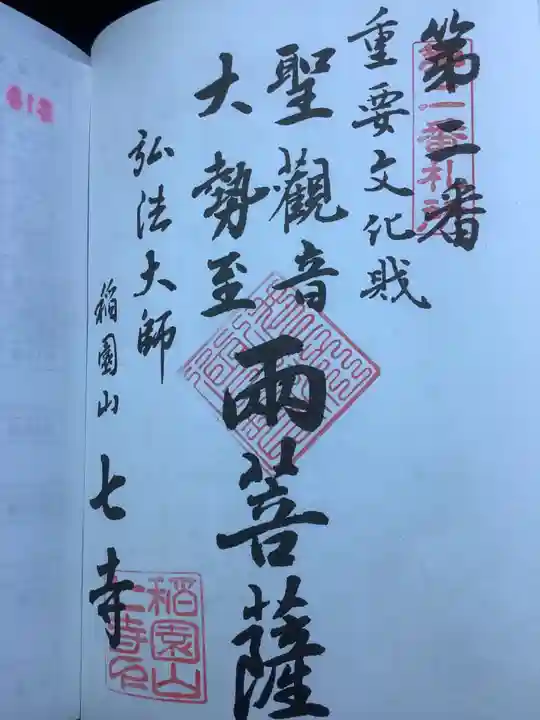 第二番
重要文化財
聖觀音
大勢至
兩菩薩
弘法大師
稲園山 七寺
稲園山
七寺印